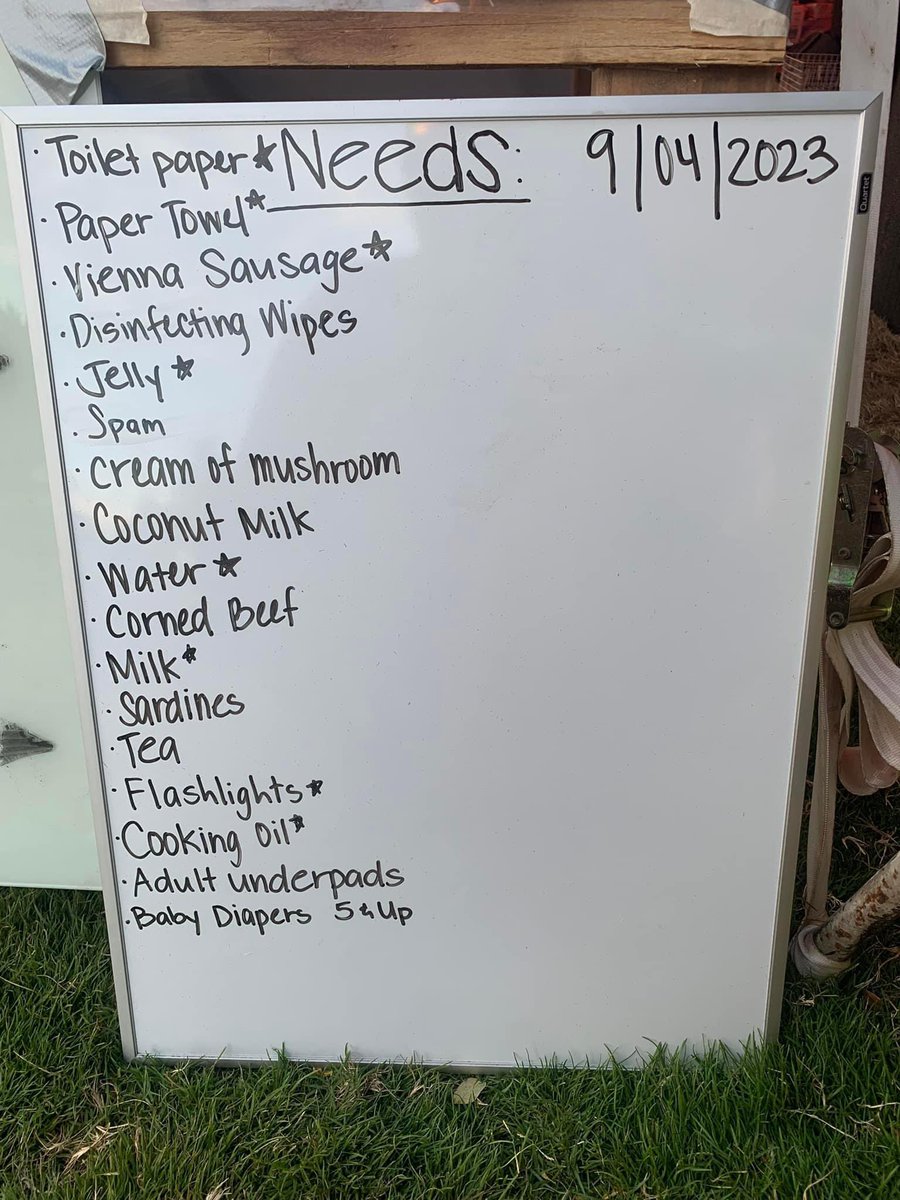 Needs: 9/04/2023
· Toilet paper ☆
· Paper Towel ☆
· Vienna Sausage ☆
· Disinfecting Wipes
· Jelly ☆
· Spam
· Cream of mushroom
· Coconut Milk
· Water ☆
· Corned Beef
· Milk ☆
· Sardines
· Tea
· Flashlights ☆
· Cooking Oil ☆
· Adult underpads
· Baby Diapers 5 & Up
Quartet